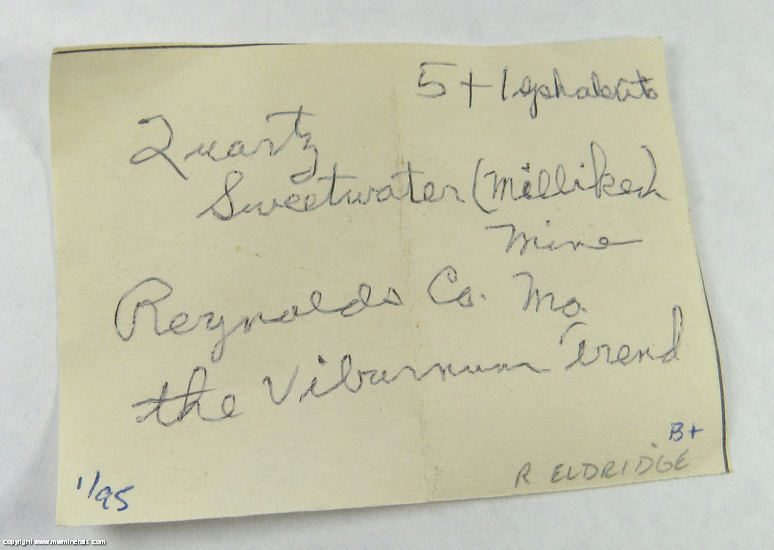 5 + 1
Quartz
Sweetwater (Milliken)
Mine
Reynolds Co. Mo.
the Viburnum Trend
B+
R ELDRIDGE
1/95
copyright www.mwminerals.com